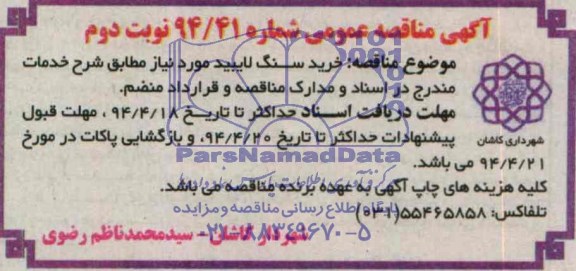 آگهی مناقصه عمومی شماره ۹۴/۴۱ نوبت دوم
موضوع مناقصه: خرید سنگ لایبید مورد نیاز مطابق شرح خدمات
مندرج در اسناد و مدارک مناقصه و قرارداد منضم.
مهلت دریافت اسناد حداکثر تا تاریخ ۹۴/۴/۱۸ ، مهلت قبول
پیشنهادات حداکثر تا تاریخ ۹۴/۴/۲۰، و بازگشایی پاکات در مورخ
۹۴/۴/۲۱ می باشد.
شهرداری کاشان
ParsNamadData
کلیه هزینه های چاپ آگهی به عهده برنده مناقصه می باشد.
تلفاکس: ۵۵۴۶۵۸۵۸(۰۳۱)
پایگاه اطلاع رسانی مناقصه و مزایده
شهردار کاشان - سیدمحمدناظم رضوی
۰۲۱-۸۸۳۴۹۶۷۰-۵